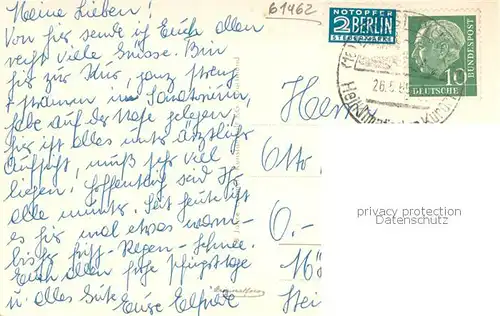 61462
Meine Lieben!
Von hier sende ich Euch allen
recht viele Grüsse. Bin
hier zur Kur, ganz streng
im Sanatorium,
habe auf der Nase gelegen,
hier ist alles unter ärztlicher
Aufsicht, muß sehr viel
liegen! Hoffentlich seid Ihr
alle munter. Seit heute ist
es hier mal etwas warm
bisher Regen - Schnee.
Euch allen frohe Pfingsttage
u. alles Gute Eure Elfriede
NOTOPFER
2 BERLIN
STEUERMARKE
DEUTSCHE
BUNDESPOST
10
26.5.
Herr
Otto
O.-
Mö
Stei
privacy protection
Datenschutz